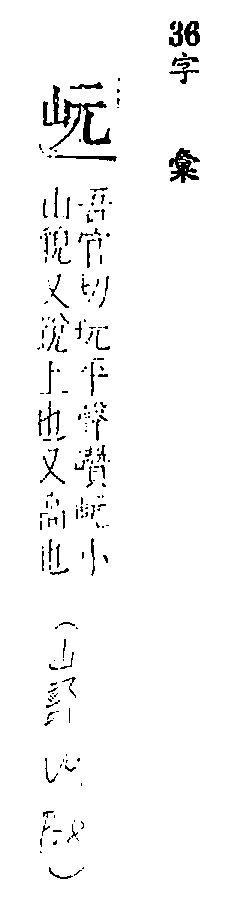 36
字彙
岏
吾官切玩平聲巑岏小
山貌又銳上也又高也
(山部